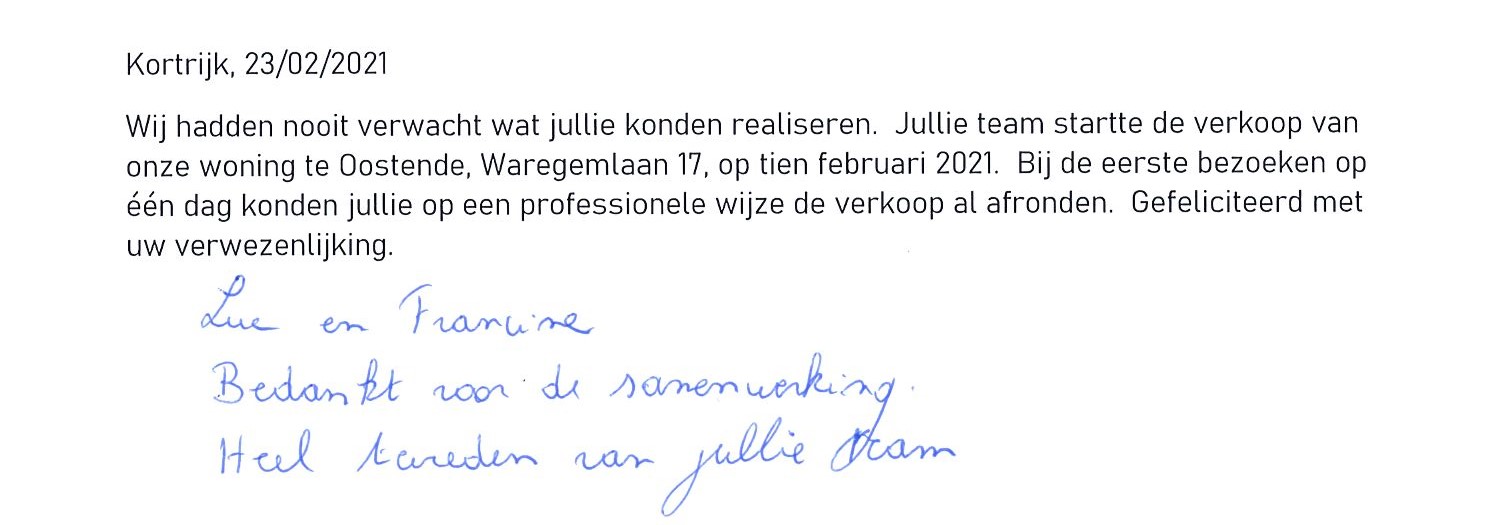 Kortrijk, 23/02/2021
Wij hadden nooit verwacht wat jullie konden realiseren. Jullie team startte de verkoop van
onze woning te Oostende, Waregemlaan 17, op tien februari 2021. Bij de eerste bezoeken op
één dag konden jullie op een professionele wijze de verkoop al afronden. Gefeliciteerd met
uw verwezenlijking.
Luc en Francine
Bedankt voor de samenwerking.
Heel tevreden van jullie team